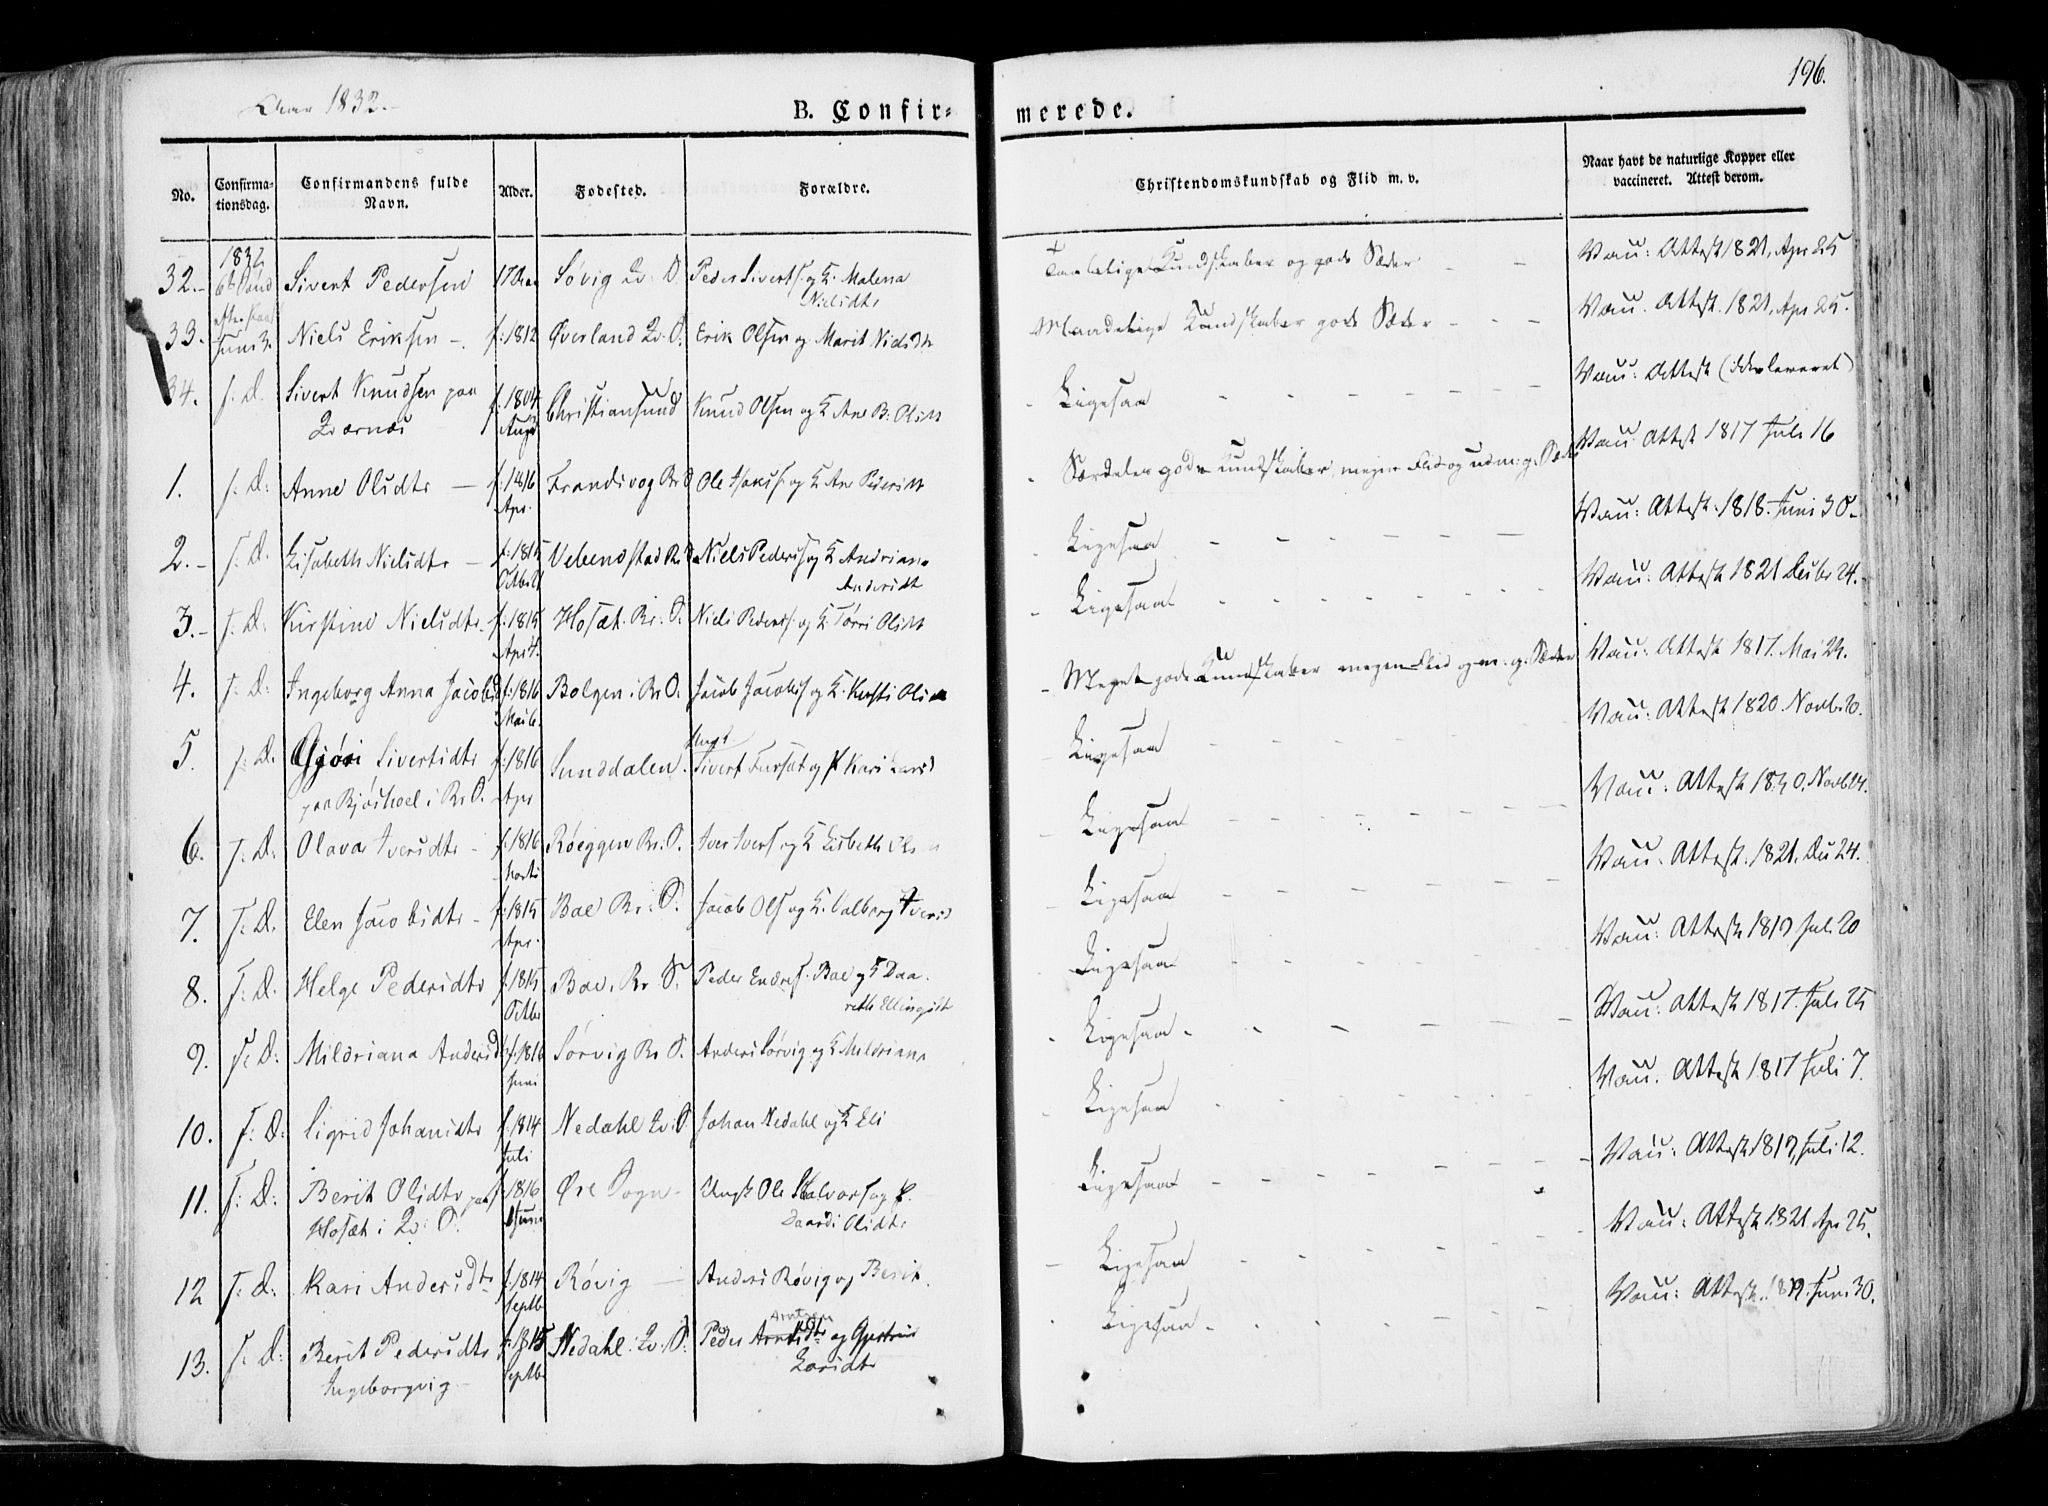 Aar 1832.
196.
B. Confirmerede.
No.
Confirmationsdag.
Confirmandens fulde Navn.
Alder.
Fødested.
Forældre.
Christendomskundskab og Flid m. v.
Naar havt de naturlige Kopper eller vaccineret. Attest derom.
1832
32. Sivert Pedersen 17 Aar Søvig Qv: S. Peder Siverts. og K. Malena Nielsdtr Kundskaber og gode Sæder Vacc: Attest 1821, Apr 25
33. Juni 3. Niels Eriksen f: 1812 Øverland Qv. S. Erik Olsen og Marit Nielsdtr Maadelige Kundskaber gode Sæder Vacc. Attest. 1821, Apr 25.
34. s. D. Sivert Knudsen paa Qværnæs f: 1804 Aug Christiansund Knud Olsen og K Ane B: Olsdtr Ligesaa Vacc: Attest (ikke leveret)
1. s: D: Anne Olsdtr f: 1816 Apr. Br S Ole og K Ane Pedersdtr gode Kundskaber, megen Flid og Vacc: Attest 1817 Juli 16
2. s. D. Lisabeth Nielsdtr f: 1815 Octbr Vebenstad Br. S. Niels Peders og K Andriane Andersdtr Ligesaa Vacc: Attest. 1818. Juni 30.
3. s: D: Kirstine Nielsdtr f: 1815 Apr Hosæt. Br: S. Niels Peders. og K. Olsdtr Ligesaa Vacc: Attest 1821 Decbr 24.
4. s: D: Ingeborg Anna Jacobsd f: 1816 Mai 6. Bolgen i Br S. Jacob Jacobs og K. Kirsti Meget gode Kundskaber megen Flid og m: g: Sæder Vacc: Attest 1817. Mai 24.
5. s: D. Gjøri Sivertsdtr paa Bjøshoel i Br S. f: 1816 Apr Sunddalen. Ungk Sivert Fursæt og P Kari Ligesaa Vacc: Attest 1820. Novbr 20.
6. s: D: Olava Iversdtr f: 1816 Marts Røeggen Br: S. Iver Ivers og K Lisbeth Ligesaa Vacc: Attest Novbr 14.
7. s: D. Elen Jacobsdtr f: 1815 Apr. Bae Br: S. Jacob Ols og K. Valborg Iversd Ligesaa Vacc. Attest. 1821. Dec 24.
8. s: D. Helge Pedersdtr f: 1815 Octbr Bae. Br S. Peder Endres. Bae og K Daareth Ellingsdtr Ligesaa Vacc: Attest 1819 Juli 20
9. s: D: Mildriana Andersd f: 1816 Juni Sørvig Br S. Anders Sørvig og K Mildriana Ligesaa Vacc: Attest 1817. Juli 25
10. s: D: Sigrid Johansdtr f: 1814 Juli Nedahl Qv: S Johan Nedahl og K Eli Ligesaa Vacc. Attest 1817 Juli 7.
11. s: D: Berit Olsdtr paa Hosæt i Qv: S. f: 1816 Øre Sogn Ungk Ole Halvors og P. Daardi Olsdtr Ligesaa Vacc: Attest 1819, Juli 12.
12 s: D. Kari Andersdtr f: 1814 Septbr Røvig Anders Røvig og Berit. Ligesaa Vacc: Attest 1821 Apr 25.
13. s. D: Berit Pedersdtr Ingeborgvig f: 1815 Septbr Nedahl: Qv: S. Peder Arntsen og Larsdtr Ligesaa Vacc: Attest. 1819. Juni 30.